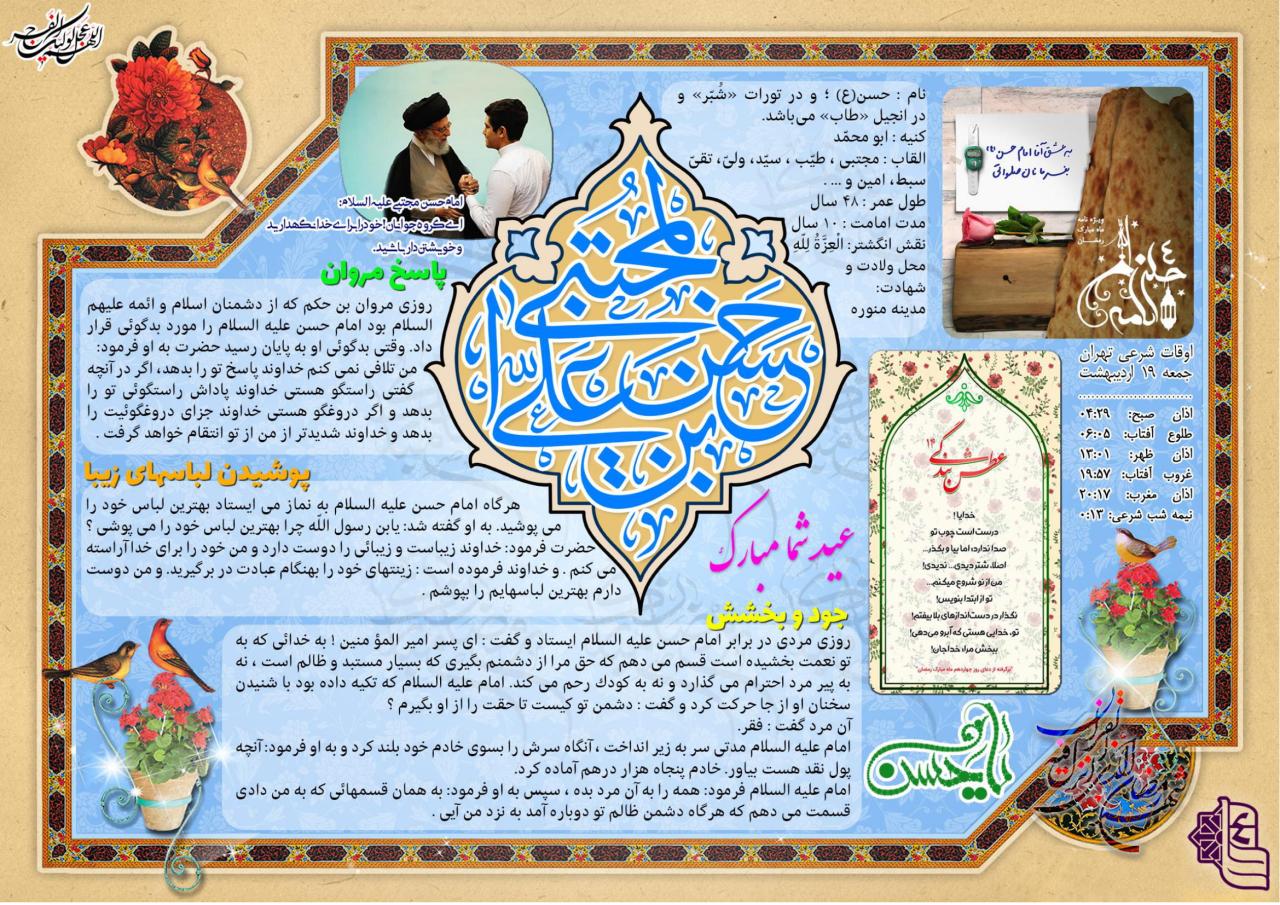 اللهم عجل لولیک الفرج
نام : حسن(ع) ؛ و در تورات «شُبّر» و
در انجیل «طاب» می‌باشد.
کنیه : ابو محمّد
القاب : مجتبی ، طیّب ، سیّد، ولیّ، تقیّ
سبط، امین و ... .
طول عمر : ۴۸ سال
مدت امامت : ۱۰ سال
نقش انگشتر: الْعِزَّةُ لِلّهِ
محل ولادت و
شهادت:
مدینه منوره
به عشق آقا امام حسن (ع)
بفرما نان صلواتی
ویژه نامه
ماه مبارک
رمضان
اوقات شرعی تهران
جمعه ۱۹ اردیبهشت
اذان صبح: ۰۴:۲۹
طلوع آفتاب: ۰۶:۰۵
اذان ظهر: ۱۳:۰۱
غروب آفتاب: ۱۹:۵۷
اذان مغرب: ۲۰:۱۷
نیمه شب شرعی: ۰:۱۳
عطش بندگی ۱۴
خدایا!
درست است چوب تو
صدا ندارد؛ اما بیا و بگذر...
اصلا، شتر دیدی... ندیدی!
من از نو شروع میکنم...
تو از ابتدا بنویس!
نگذار در دست‌اندازهای بلا بیفتم!
تو، خدایی هستی که آبرو می‌دهی!
ببخش مرا، خداجان!
برگرفته از دعای روز چهاردهم ماه مبارک رمضان
حسن بن علی المجتبی
عید شما مبارک
امام حسن مجتبی علیه السلام:
ای گروه جوانان! خود را برای خدا نگهدارید
و خویشتن دار باشید.
پاسخ مروان
روزی مروان بن حکم که از دشمنان اسلام و ائمه علیهم
السلام بود امام حسن علیه السلام را مورد بدگوئی قرار
داد. وقتی بدگوئی او به پایان رسید حضرت به او فرمود:
من تلافی نمی کنم خداوند پاسخ تو را بدهد، اگر در آنچه
گفتی راستگو هستی خداوند پاداش راستگوئی تو را
بدهد و اگر دروغگو هستی خداوند جزای دروغگوئیت را
بدهد و خداوند شدیدتر از من از تو انتقام خواهد گرفت .
پوشیدن لباسهای زیبا
هرگاه امام حسن علیه السلام به نماز می ایستاد بهترین لباس خود را
می پوشید. به او گفته شد: یابن رسول اللّه چرا بهترین لباس خود را می پوشی ؟
حضرت فرمود: خداوند زیباست و زیبائی را دوست دارد و من خود را برای خدا آراسته
می کنم . و خداوند فرموده است : زینتهای خود را بهنگام عبادت در برگیرید. و من دوست
دارم بهترین لباسهایم را بپوشم .
جود و بخشش
روزی مردی در برابر امام حسن علیه السلام ایستاد و گفت : ای پسر امیر المؤ منین ! به خدائی که به
تو نعمت بخشیده است قسم می دهم که حق مرا از دشمنم بگیری که بسیار مستبد و ظالم است ، نه
به پیر مرد احترام می گذارد و نه به کودك رحم می کند. امام علیه السلام که تکیه داده بود با شنیدن
سخنان او از جا حرکت کرد و گفت : دشمن تو کیست تا حقت را از او بگیرم ؟
آن مرد گفت : فقر.
امام علیه السلام مدتی سر به زیر انداخت ، آنگاه سرش را بسوی خادم خود بلند کرد و به او فرمود: آنچه
پول نقد هست بیاور. خادم پنجاه هزار درهم آماده کرد.
امام علیه السلام فرمود: همه را به آن مرد بده ، سپس به او فرمود: به همان قسمهائی که به من دادی
قسمت می دهم که هرگاه دشمن ظالم تو دوباره آمد به نزد من آیی .
یا حسن